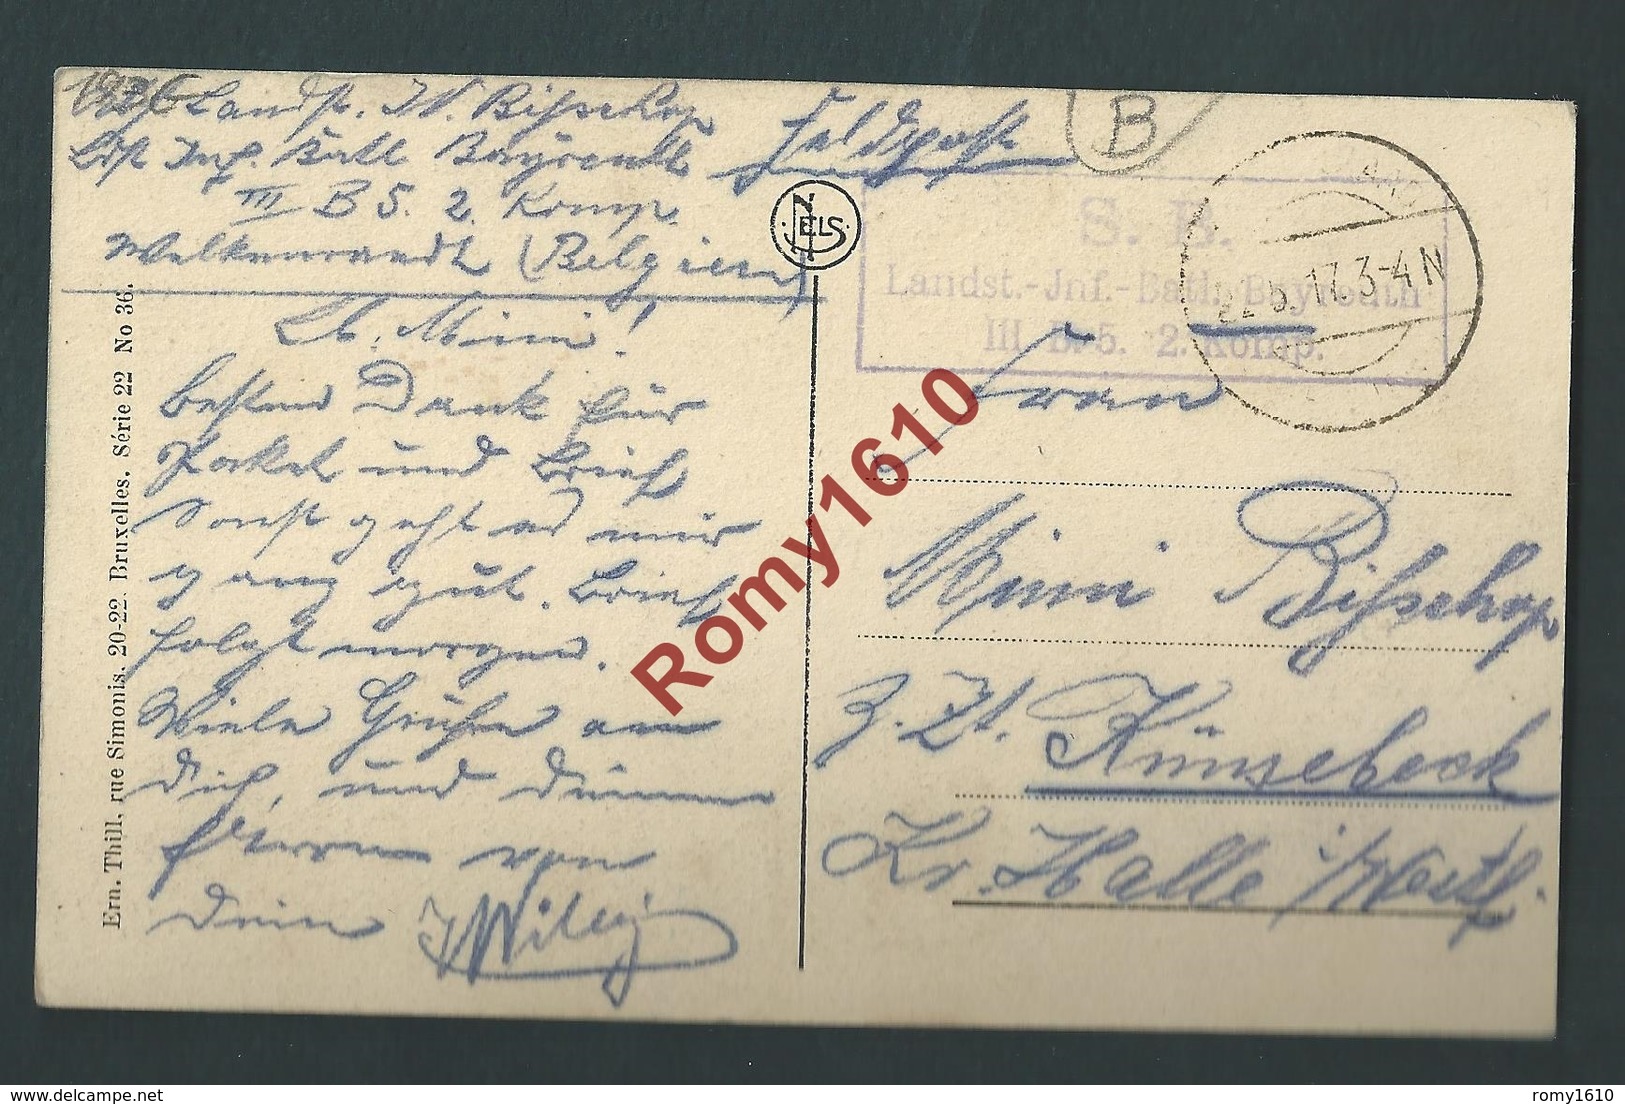 Landst. W. Bisschop
Ldst. Inf. Batl. Bayreuth
III B 5. 2. Komp.
Welkenraedt (Belgien)
Feldpost
B
NELS
S. B.
Landst.-Inf.-Batl. Bayreuth
III. B. 5. 2. Komp.
22 5. 17. 3-4 N
Lb. Mimi!
Besten Dank für
Packet und Brief
Sonst geht es mir
ganz gut. Brief
folgt morgen.
Viele Grüße an
Dich, und Deinen
Eltern von
Dein Willy
Frau
Mimi Bisschop
z. Zt. Künsebeck
Kr. Halle i/Westf.
Ern. Thill, rue Simonis, 20-22. Bruxelles. Série 22 No 36.
Romy1610
delcampe.net
romy1610